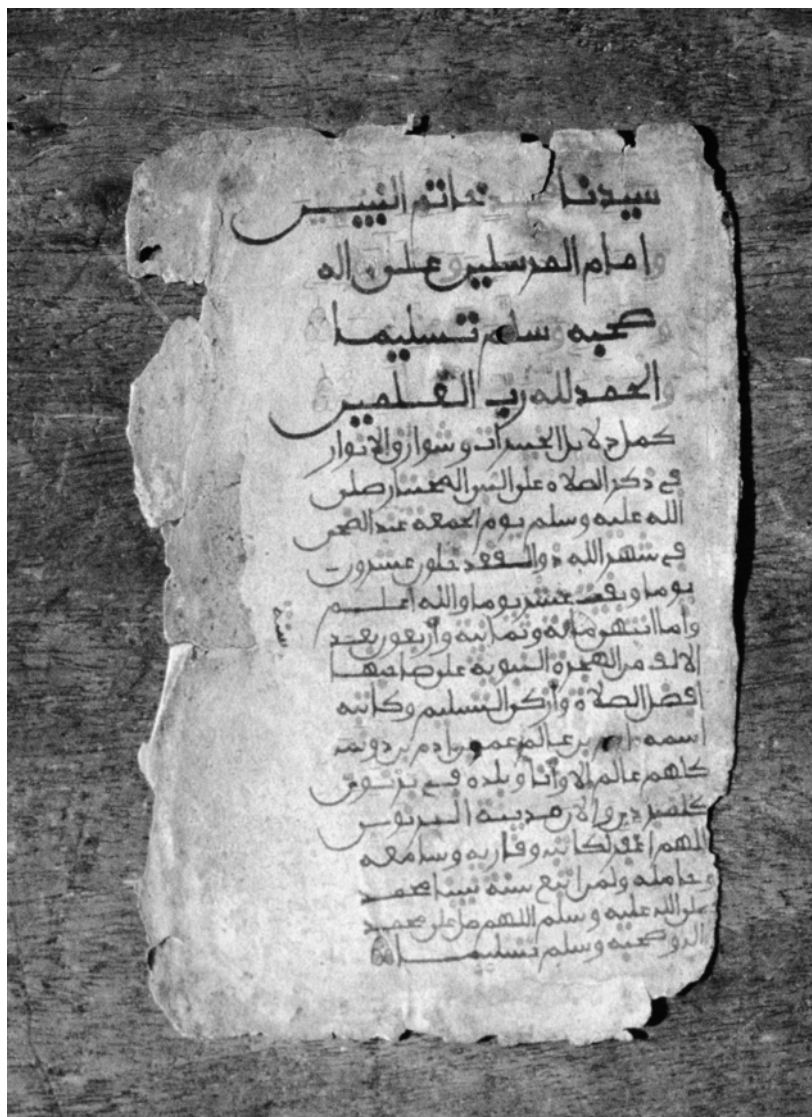 سيدنا خاتم النبيين
وامام المرسلين وعلى اله
وصحبه وسلم تسليما
والحمد لله رب العلمين
كمل دلايل الخيرات وشوارق الانوار
في ذكر الصلاة على النبي المختار صلى
الله عليه وسلم يوم الجمعة عند الضحى
في شهر الله ذو القعد خلون عشرون
يوما وبقت عشر يوما والله اعلم
واما انتهو مائة وثمانية وأربعون بعد
سنة
الالف من الهجرة النبوية على صاحبها
افضل الصلاة وأزكى التسليم وكاتبه
اسمه بن عالم عمر بن ادم بن
كلهم عالم وبلده في برنوى
والان مدينة البرنوى
اللهم اغفر لكاتبه وقاريه وسامعه
وحامله ولمن اتبع سنة نبينا محمد
صلى الله عليه وسلم اللهم صل على محمد
اله وصحبه وسلم تسليما